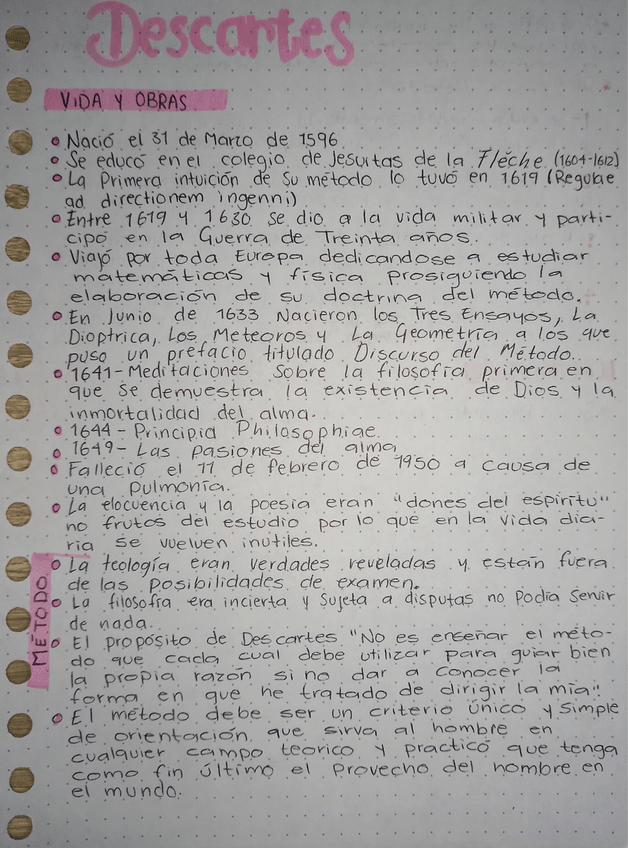 Descartes
VIDA Y OBRAS
Nació el 31 de Marzo de 1596.
Se educó en el colegio de Jesuitas de la Fléche (1604-1612)
La Primera intuición de su método lo tuvó en 1619 (Regulae
ad directionem ingenni)
Entre 1619 y 1630 se dio a la vida militar y parti-
cipó en la Guerra de Treinta años.
Viajó por toda Europa dedicandose a estudiar
matemáticas y física prosiguiendo la
elaboración de su doctrina del método.
En Junio de 1633 Nacieron los Tres Ensayos, La
Dioptrica, Los Meteoros y La Geometría a los que
puso un prefacio titulado Discurso del Método.
1641-Meditaciones Sobre la filosofía primera en
que se demuestra la existencia de Dios y la
inmortalidad del alma.
1644-Principia Philosophiae
1649-Las pasiones del alma
Falleció el 11 de febrero de 1950 a causa de
una pulmonía.
La elocuencia y la poesía eran "dones del espíritu"
no frutos del estudio por lo que en la vida dia-
ria se vuelven inutiles.
MÉTODO
La teología eran verdades reveladas y están fuera
de las posibilidades de examen.
La filosofía era incierta y sujeta a disputas no podía servir
de nada.
El proposito de Descartes "No es enseñar el méto-
do que cada cual debe utilizar para guiar bien
la propia razón si no dar a conocer la
forma en que he tratado de dirigir la mía".
El método debe ser un criterio único y simple
de orientación que sirva al hombre en
cualquier campo teorico y practico que tenga
como fin último el provecho del hombre en
el mundo.